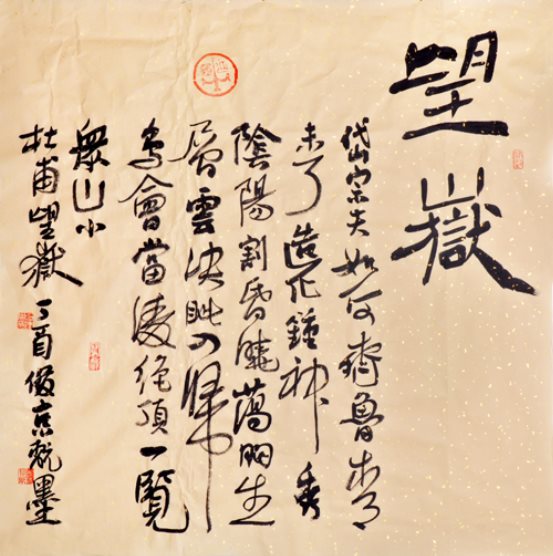 望嶽
岱宗夫如何齊魯青
未了造化鍾神秀
陰陽割昏曉蕩胸生
層雲決眥入歸
鳥會當凌絕頂一覽
衆山小
杜甫望嶽 丁酉俊京墨